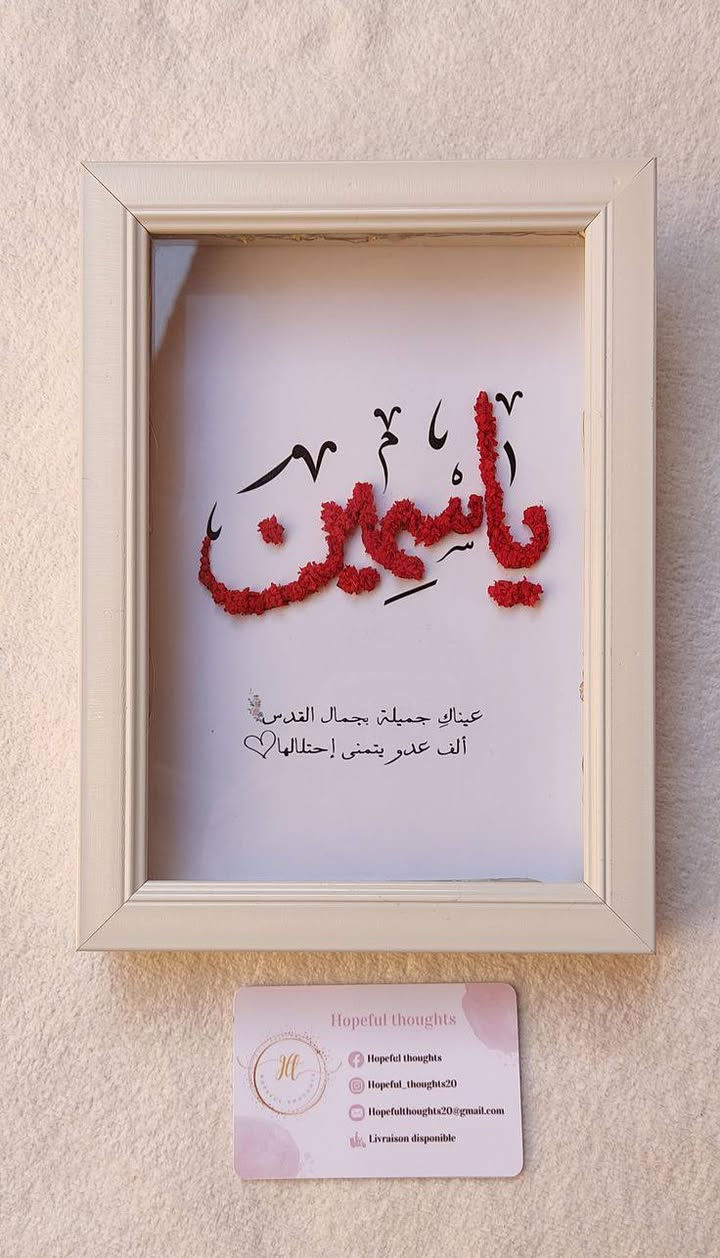 ياسمين
عيناكِ جميلة بجمال القدس
ألف عدو يتمنى إحتلالها
Hopeful thoughts
Hopeful thoughts
Hopeful_thoughts20
Hopefulthoughts20@gmail.com
Livraison disponible